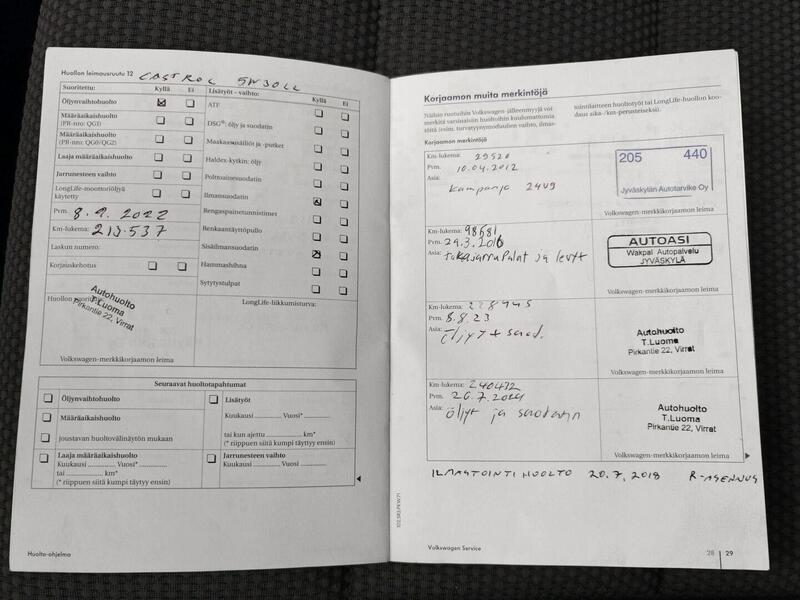 Huollon leimausruutu 12 CASTROL 5W30LL
Suoritettu: Kyllä Ei
Öljynvaihtohuolto
Määräaikaishuolto
(PR-nro: QG1)
Määräaikaishuolto
(PR-nro: QG0/QG2)
Laaja määräaikaishuolto
Jarrunesteen vaihto
LongLife-moottoriöljyä
käytetty
Pvm. 8.9.2022
Km-lukema: 213.537
Laskun numero:
Korjauskehotus
Huollon suorittaja
Autohuolto
T.Luoma
Pirkantie 22, Virrat
Volkswagen-merkkikorjaamon leima
Lisätyöt - vaihto: Kyllä Ei
ATF
DSG®: öljy ja suodatin
Maakaasusäiliöt ja -putket
Haldex-kytkin: öljy
Polttoainesuodatin
Ilmansuodatin
Rengaspainetunnistimet
Renkaantäyttöpullo
Sisäilmansuodatin
Hammashihna
Sytytystulpat
LongLife-liikkumisturva:
Seuraavat huoltotapahtumat
Öljynvaihtohuolto
Määräaikaishuolto
joustavan huoltovälinäytön mukaan
Laaja määräaikaishuolto
Kuukausi Vuosi*
tai km*
(* riippuen siitä kumpi täytyy ensin)
Lisätyöt
Kuukausi Vuosi*
tai kun ajettu km*
(* riippuen siitä kumpi täytyy ensin)
Jarrunesteen vaihto
Kuukausi Vuosi
Huolto-ohjelma
Korjaamon muita merkintöjä
Näihin ruutuihin Volkswagen-jälleenmyyjä voi
merkitä varsinaisiin huoltoihin kuulumattomia
töitä (esim. turvatyynymoduulien vaihto, ilmas-
tointilaitteen huoltotyöt tai LongLife-huollon koo-
daus aika-/km-perusteiseksi).
Korjaamon merkintöjä
Km-lukema: 29520
Pvm. 10.04.2012
Asia:
Kampanja 24V9
205 440
Jyväskylän Autotarvike Oy
Volkswagen-merkkikorjaamon leima
Km-lukema: 98681
Pvm. 29.3.2016
Asia: takajarrupalat ja levyt
AUTOASI
Wakpal Autopalvelu
JYVÄSKYLÄ
Volkswagen-merkkikorjaamon leima
Km-lukema: 228945
Pvm. 8.8.23
Asia: Öljyt + suod.
Autohuolto
T.Luoma
Pirkantie 22, Virrat
Volkswagen-merkkikorjaamon leima
Km-lukema: 240472
Pvm. 26.7.2024
Asia: öljyt ja suodatin
Autohuolto
T.Luoma
Pirkantie 22, Virrat
Volkswagen-merkkikorjaamon leima
ILMASTOINTIHUOLTO 20.7.2018 R-ASENNUS
102.5R2.PKW.71
Volkswagen Service
28 29